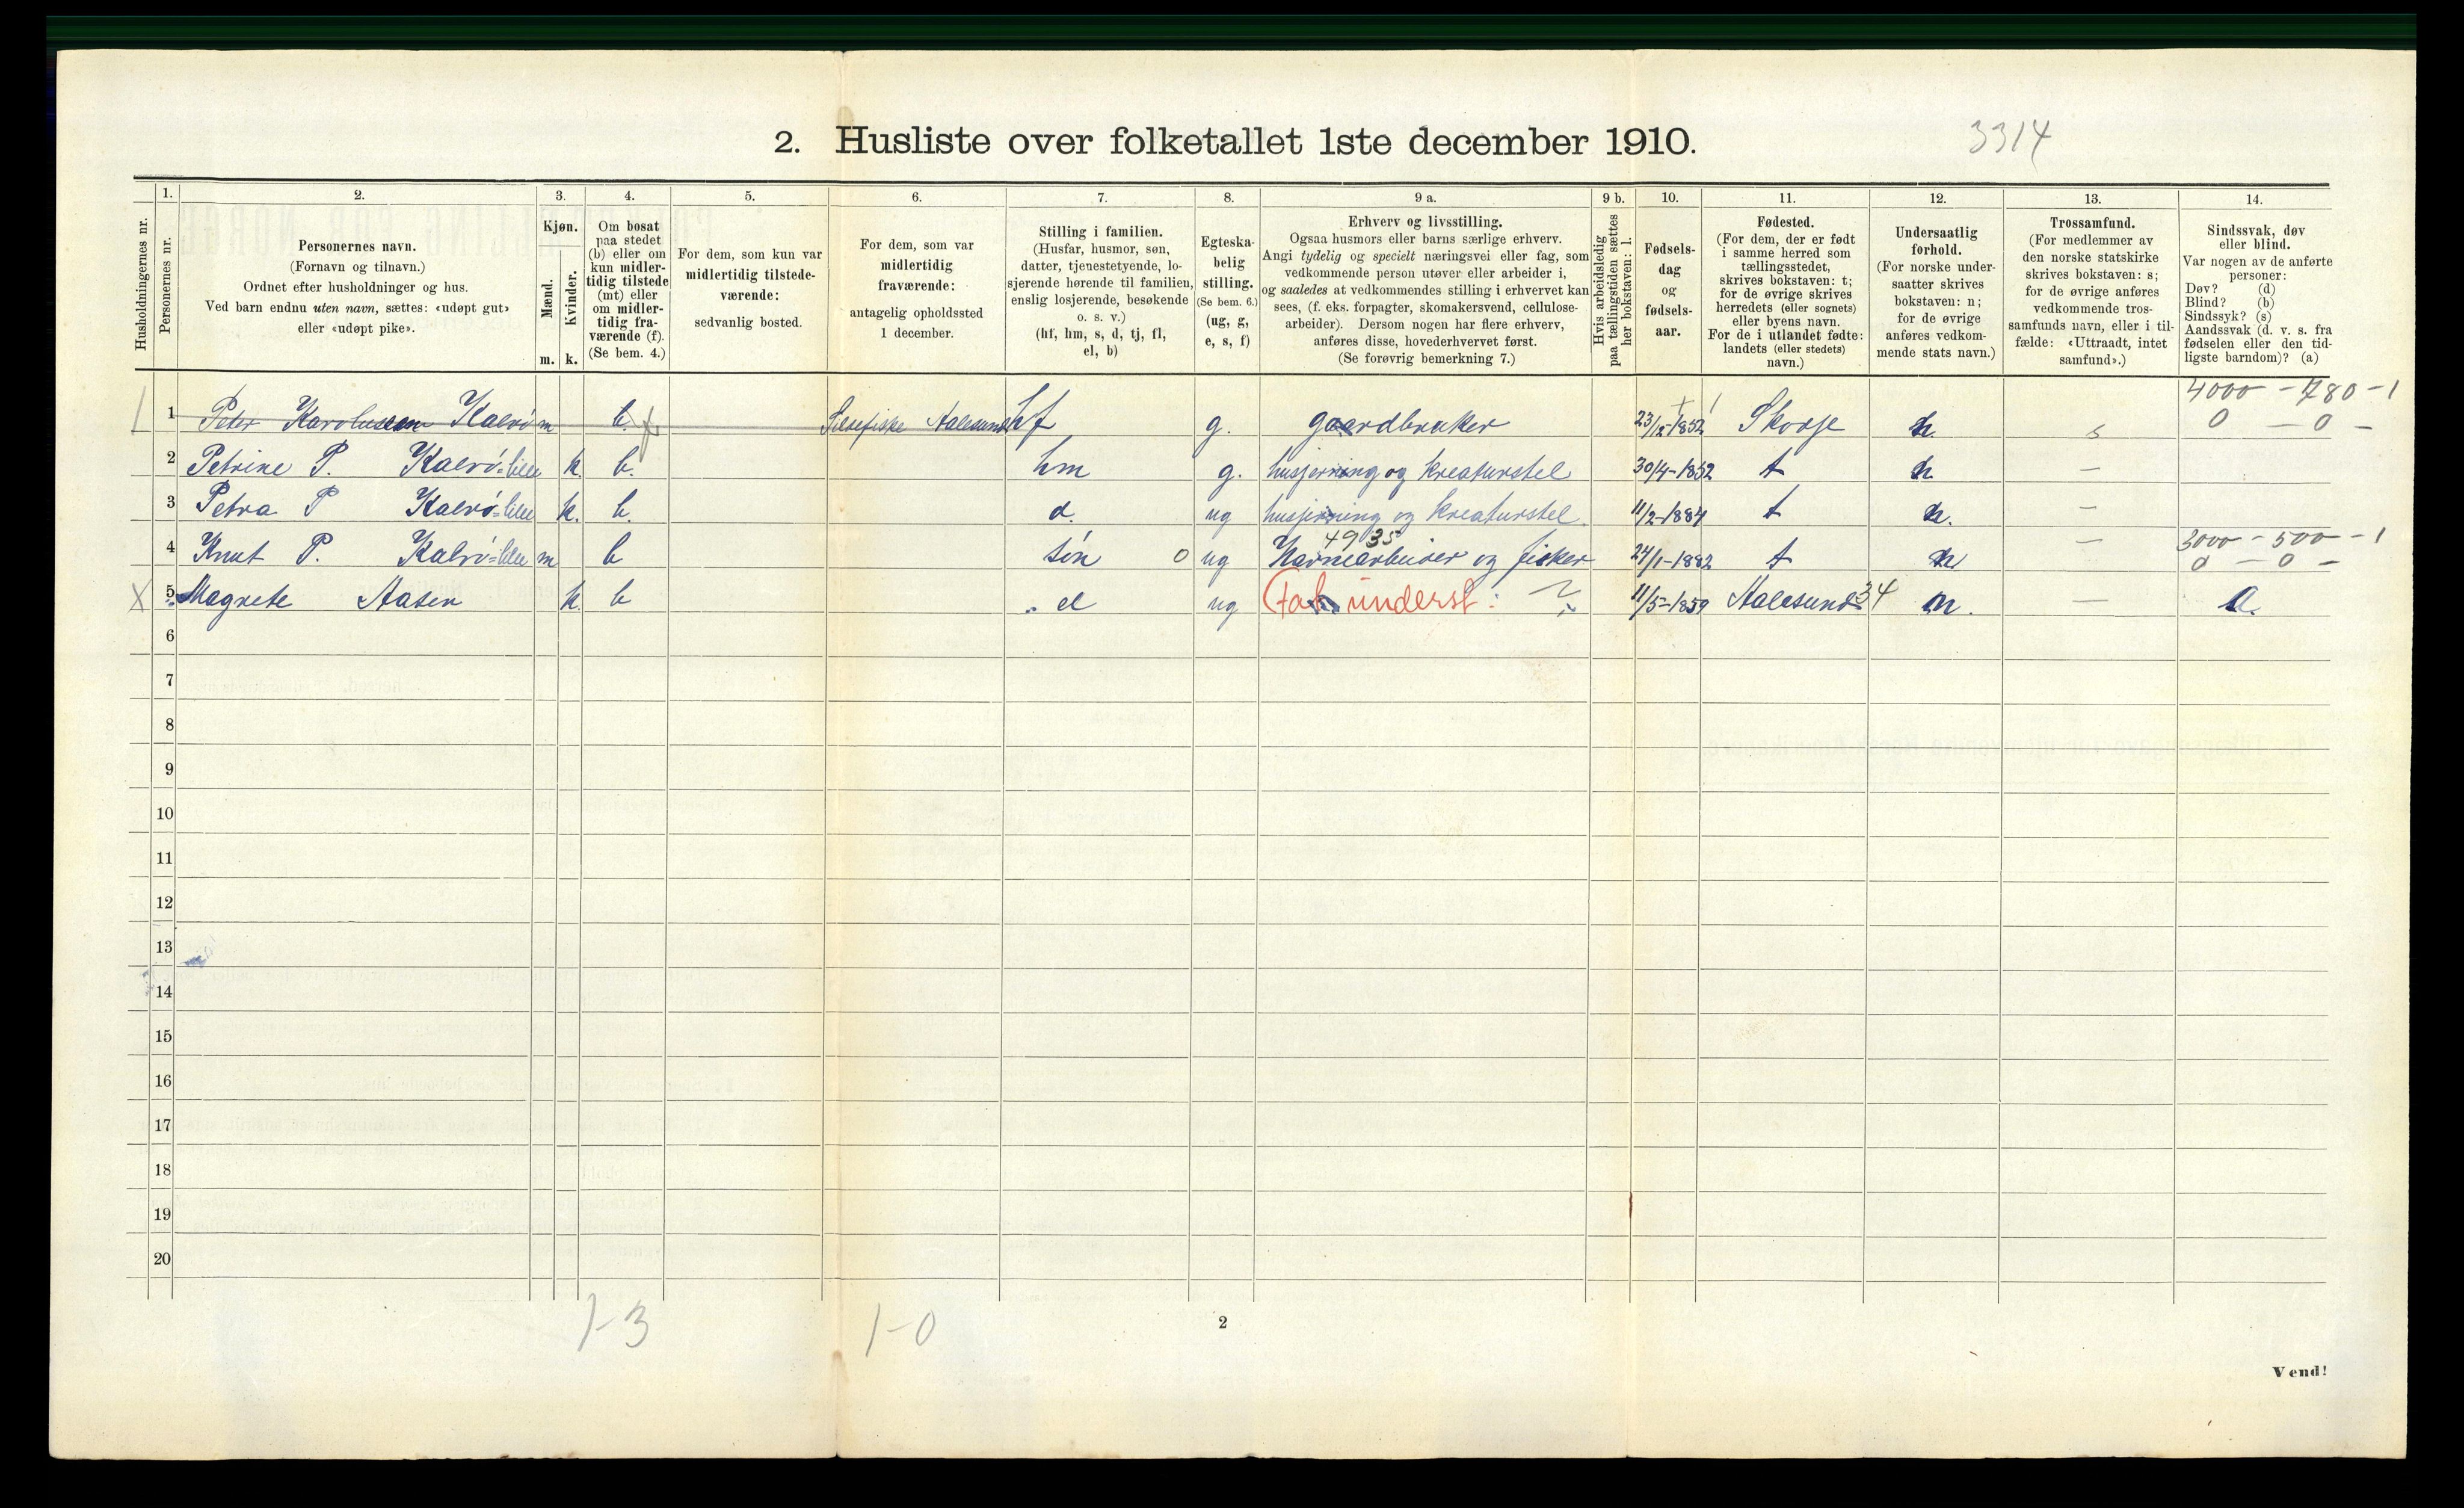 2. Husliste over folketallet 1ste december 1910.
3314
Husholdningernes nr.
1.
Personernes nr.
2.
Personernes navn.
(Fornavn og tilnavn.)
Ordnet efter husholdninger og hus.
Ved barn endnu uten navn, sættes: «udøpt gut»
eller «udøpt pike».
3.
Kjøn.
Mænd.
Kvinder.
m. k.
4.
Om bosat
paa stedet
(b) eller om
kun midler-
tidig tilstede
(mt) eller
om midler-
tidig fra-
værende (f).
(Se bem. 4.)
5.
For dem, som kun var
midlertidig tilstede-
værende:
sedvanlig bosted.
6.
For dem, som var
midlertidig
fraværende:
antagelig opholdssted
1 december.
7.
Stilling i familien.
(Husfar, husmor, søn,
datter, tjenestetyende, lo-
sjerende hørende til familien,
enslig losjerende, besøkende
o. s. v.)
(hf, hm, s, d, tj, fl,
el, b)
8.
Egteska-
belig
stilling.
(Se bem. 6.)
(ug, g,
e, s, f)
9 a.
Erhverv og livsstilling.
Ogsaa husmors eller barns særlige erhverv.
Angi tydelig og specielt næringsvei eller fag, som
vedkommende person utøver eller arbeider i,
og saaledes at vedkommendes stilling i erhvervet kan
sees, (f. eks. forpagter, skomakersvend, cellulose-
arbeider). Dersom nogen har flere erhverv,
anføres disse, hovederhvervet først.
(Se forøvrig bemerkning 7.)
9 b.
Hvis arbeidsledig
paa tællingstiden sættes
her bokstaven: l.
10.
Fødsels-
dag
og
fødsels-
aar.
11.
Fødested.
(For dem, der er født
i samme herred som
tællingsstedet,
skrives bokstaven: t;
for de øvrige skrives
herredets (eller sognets)
eller byens navn.
For de i utlandet fødte:
landets (eller stedets)
navn.)
12.
Undersaatlig
forhold.
(For norske under-
saatter skrives
bokstaven: n;
for de øvrige
anføres vedkom-
mende stats navn.)
13.
Trossamfund.
(For medlemmer av
den norske statskirke
skrives bokstaven: s;
for de øvrige anføres
vedkommende tros-
samfunds navn, eller i til-
fælde: «Uttraadt, intet
samfund».)
14.
Sindssvak, døv
eller blind.
Var nogen av de anførte
personer:
Døv? (d)
Blind? (b)
Sindssyk? (s)
Aandssvak (d. v. s. fra
fødselen eller den tid-
ligste barndom)? (a)
4000 - 780 - 1
1 Peter Karolussen Kalvø m b. x Aalesund hf g. gaardbruker 23/12-1852 Skodje n. s 0 - 0 -
2 Petrine P. Kalvø-lille k b. hm g. husjerning og kreaturstel 30/4-1852 t n —
3 Petra P Kalvø-lille k. b. d. ug husjerning og kreaturstel 11/2-1884 t n. —
49 35
3000 - 500 - 1
4 Knut P. Kalvø-lille m b søn 0 ug og fisker 24/1-1882 t n — 0 - 0 -
X 5 Magrete Aasen k b el ug Fat. underst: 11/5-1859 Aalesund 34 n. — a.
6
7
8
9
10
11
12
13
14
15
16
17
18
19
20
1-3
1-0
2
Vend!